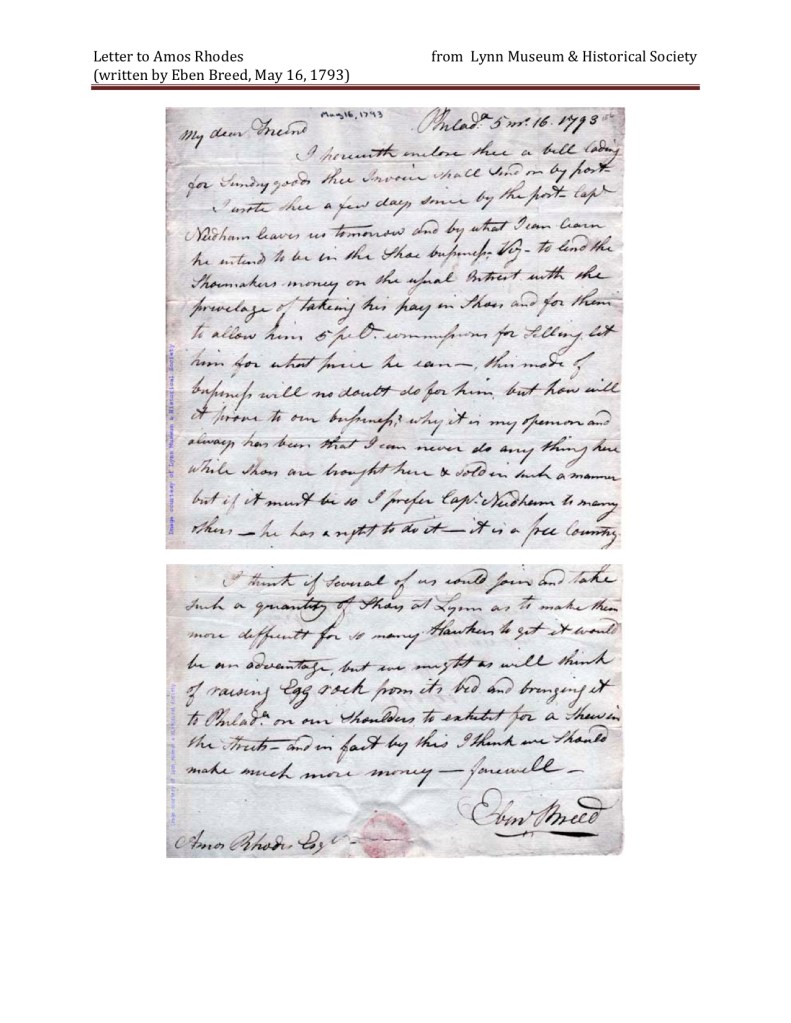 Letter to Amos Rhodes from Lynn Museum & Historical Society
(written by Eben Breed, May 16, 1793)
May 16, 1793
Philad.ª 5 mº. 16. 1793
My dear Friend
I herewith enclose thee a bill lading
for Sundry goods thee Invoice shall Send on by post
I wrote thee a few days since by the post – Capt
Needham leaves us tomorrow and by what I can learn
he intend to be in the Shoe business Viz – to lend the
Shoemakers money on the usual Intrest with the
privelage of takeing his pay in Shoes and for them
to allow him 5 pr Ct. commissions for Selling let
him for what price he can —, this mode of
business will no doubt do for him, but how will
it prove to our business? why it is my openion and
always has been that I can never do any thing here
while Shoes are brought here & Sold in such a manner
but if it must be so I prefer Capt. Needham to many
others — he has a right to do it — it is a free Country
I think if Several of us could join and take
Such a quantity of Shoes at Lynn as to make them
more difficult for so many Hawkers to get it would
be an advantage, but we might as well think
of raising Egg rock from its bed and bringing it
to Philad.ª on our Shoulders to exhibit for a Shew in
the Streets – and in fact by this I think we Should
make much more money — farewell –
Eben Breed
Amos Rhodes Esqr
Image courtesy of Lynn Museum & Historical Society
Image courtesy of Lynn Museum & Historical Society